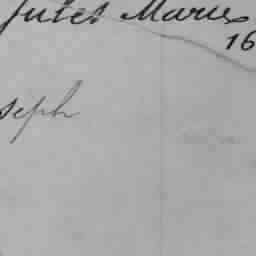 Jules Marie
16
seph